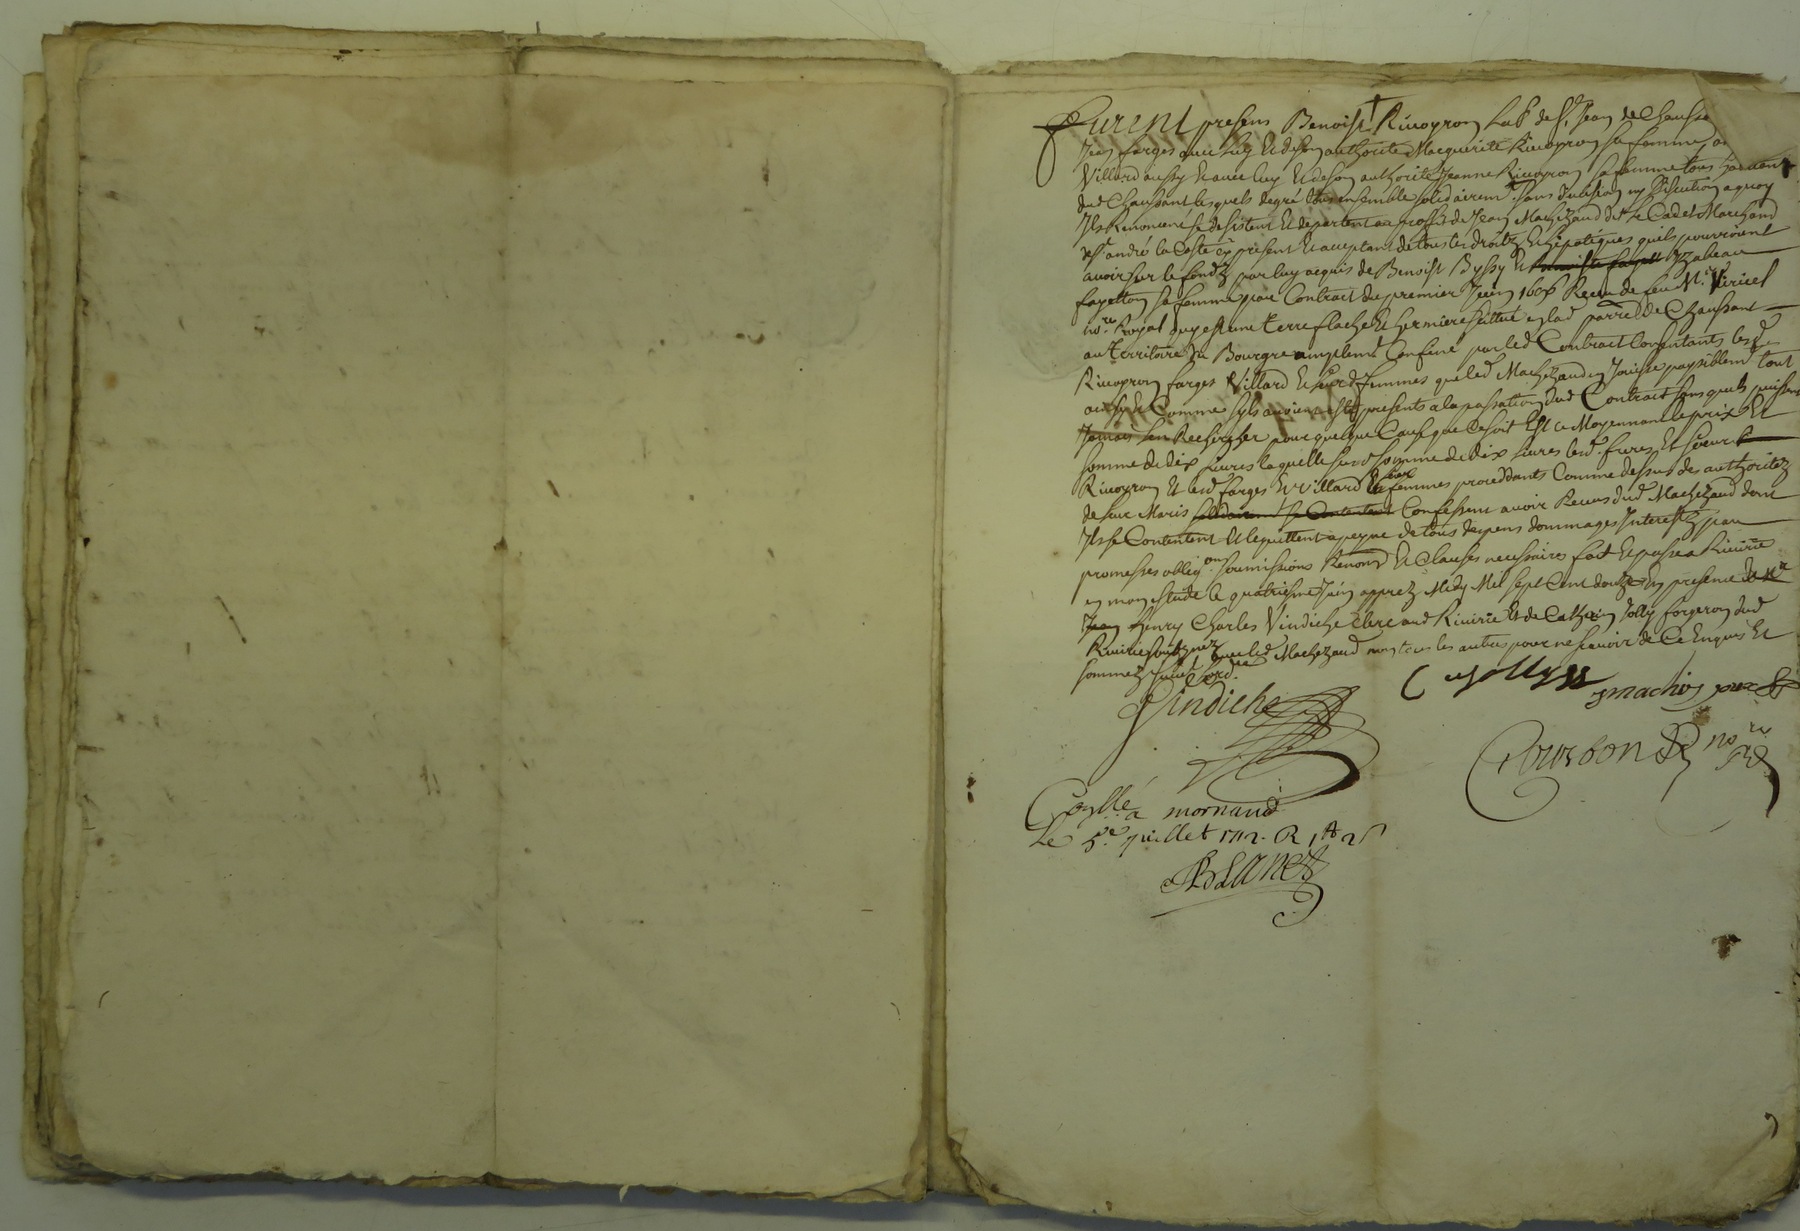 Furent presens Benoist Rivoyron lab.r de St Jean de Chaussa
Jean farges avec luy et de son authorite Marguerite Rivoyron sa femme,
Villard aussy et avec luy et de son authorité Jeanne Rivoyron sa femme tous habitant
dud Chaussant lesquels de gré tous ensemble solidairem.t sans division ny discution a quoy
Ils Renoncent se desistent et departent au proffit de Jean Machizaud dit le Cadet Marchand
de St andré la Coste cy present et acceptant de tous les droits et hipotèques quils pourroient
avoir sur le fondz par luy acquis de Benoist Byssy et Yzabeau
fayetton sa femme par Contrait du premier Juin Receu de feu M.e Viricel
no.re Royal quy est une terre flache et hermiere scittué en lad parroe de Chaussant
au territoire du Bourgre amplemt Confiné par led Contrait Consentants lesd
Rivoyron farges Villard et leurd femmes que led Machizaud en Jouisse paysiblemt tout
ainsy et Comme syls avoient estés presents a la passation dud Contrait sans quils puissent
Jamais len Rechercher pour quelque Cause que ce soit Et ce Moyennant le prix Et
somme de dix livres laquelle susd somme de dix livres lesd. freres et soeurs
Rivoyron et lesd farges et Villard leurs femmes proceddants Comme dessus des authoritez
de leur Maris solidairemt se Contentent Confessent avoir Receus dud Machizaud dont
Ils se Contentent et le quittent a peyne de tous depens dommages Interestz par
promesses oblig.on soumissions Renon.d et Clauses necessaires fait et passé a Riverie
en mon estude le quatriesme Juin apprez Midy Mil sept Cent douze En presence de Me
Jean henry Charles Vindiche Clerc aud Riverie et de Catherin Jolly forgeron dud
Riverie soubsignez avec led Machizaud non tous les autres pour ne scavoir de Ce Enquis Et
sommez suivt lord.re
Vindiche
C Jollyss
Courbon no.re Rl
Coñllé a mornand
Le 5.e juillet 1712. R
Blanet